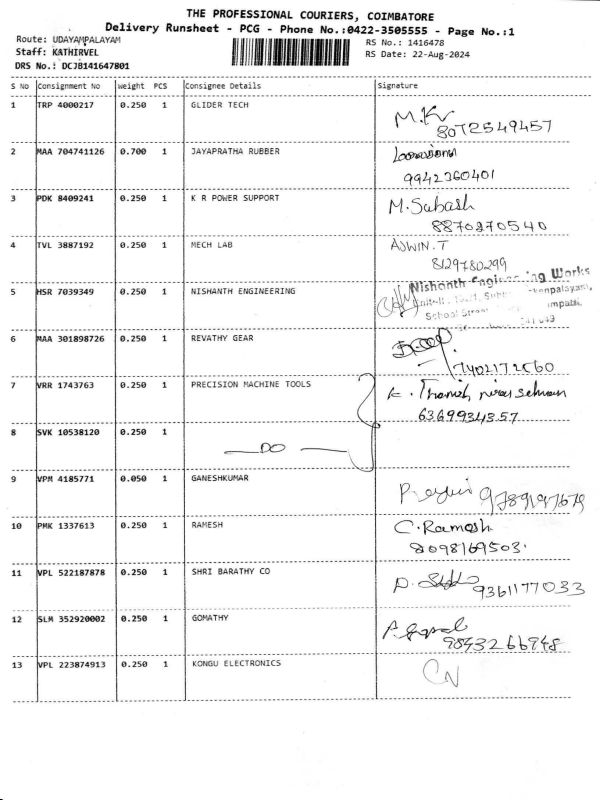 THE PROFESSIONAL COURIERS, COIMBATORE
Delivery Runsheet - PCG - Phone No.:0422-3505555 - Page No.:1
Route: UDAYAMPALAYAM
RS No.: 1416478
Staff: KATHIRVEL
RS Date: 22-Aug-2024
DRS No.: DCJB141647801
S No Consignment No weight PCS Consignee Details Signature
1 TRP 4000217 0.250 1 GLIDER TECH
8072549457
2 MAA 704741126 0.700 1 JAYAPRATHA RUBBER
9942360401
3 PDK 8409241 0.250 1 K R POWER SUPPORT M. Subash
8870270540
4 TVL 3887192 0.250 1 MECH LAB AJWIN. T
8129780299
5 HSR 7039349 0.250 1 NISHANTH ENGINEERING Nishanth Engineering Works
School Street
6 MAA 301898726 0.250 1 REVATHY GEAR
7402172060
7 VRR 1743763 0.250 1 PRECISION MACHINE TOOLS
6369934357
8 SVK 10538120 0.250 1 — DO —
9 VPM 4185771 0.050 1 GANESHKUMAR 9789197679
10 PMK 1337613 0.250 1 RAMESH C. Ramesh
8098169503.
11 VPL 522187878 0.250 1 SHRI BARATHY CO 9361177033
12 SLM 352920002 0.250 1 GOMATHY
9843266948
13 VPL 223874913 0.250 1 KONGU ELECTRONICS CN